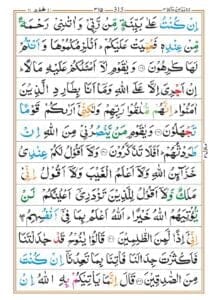 315
اِنْ كُنْتُ عَلٰى بَيِّنَةٍ مِّنْ رَّبِّيْ وَاٰتٰىنِيْ رَحْمَةً
مِّنْ عِنْدِهٖ فَعُمِّيَتْ عَلَيْكُمْ ؕ اَنُلْزِمُكُمُوْهَا وَاَنْتُمْ
لَهَا كٰرِهُوْنَ ۝ وَيٰقَوْمِ لَاۤ اَسْـَٔلُكُمْ عَلَيْهِ مَالًا ؕ
اِنْ اَجْرِيَ اِلَّا عَلَى اللّٰهِ وَمَاۤ اَنَا بِطَارِدِ الَّذِيْنَ
اٰمَنُوْا ؕ اِنَّهُمْ مُّلٰقُوْا رَبِّهِمْ وَلٰكِنِّيْۤ اَرٰىكُمْ قَوْمًا
تَجْهَلُوْنَ ۝ وَيٰقَوْمِ مَنْ يَّنْصُرُنِيْ مِنَ اللّٰهِ اِنْ
طَرَدْتُّهُمْ ؕ اَفَلَا تَذَكَّرُوْنَ ۝ وَلَاۤ اَقُوْلُ لَكُمْ عِنْدِيْ
خَزَآئِنُ اللّٰهِ وَلَاۤ اَعْلَمُ الْغَيْبَ وَلَاۤ اَقُوْلُ اِنِّيْ
مَلَكٌ وَّلَاۤ اَقُوْلُ لِلَّذِيْنَ تَزْدَرِيْۤ اَعْيُنُكُمْ لَنْ
يُّؤْتِيَهُمُ اللّٰهُ خَيْرًا ؕ اَللّٰهُ اَعْلَمُ بِمَا فِيْۤ اَنْفُسِهِمْ
اِنِّيْۤ اِذًا لَّمِنَ الظّٰلِمِيْنَ ۝ قَالُوْا يٰنُوْحُ قَدْ جٰدَلْتَنَا
فَاَكْثَرْتَ جِدَالَنَا فَاْتِنَا بِمَا تَعِدُنَاۤ اِنْ كُنْتَ
مِنَ الصّٰدِقِيْنَ ۝ قَالَ اِنَّمَا يَاْتِيْكُمْ بِهِ اللّٰهُ اِنْ